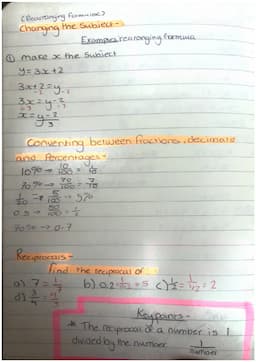 (Rearranging Formulae)
Changing the Subject -
Examples rearranging formula
① make x the subject
y = 3x + 2
3x + 2 = y
3x = y - 2
x = y - 2 / 3
Converting between fractions, decimals
and Percentages -
10% → 10/100 = 1/10
70% → 70/100 = 7/10
1/20 → 5/100 → 5%
0.5 → 50/100 = 1/2
70% → 0.7
Reciprocals -
Find the reciprocal of...
a) 7 = 1/7 b) 0.2 = 5 c) 1/2 = 2
d) 3/4
Key points -
* The reciprocal of a number is 1
divided by the number. 1/number